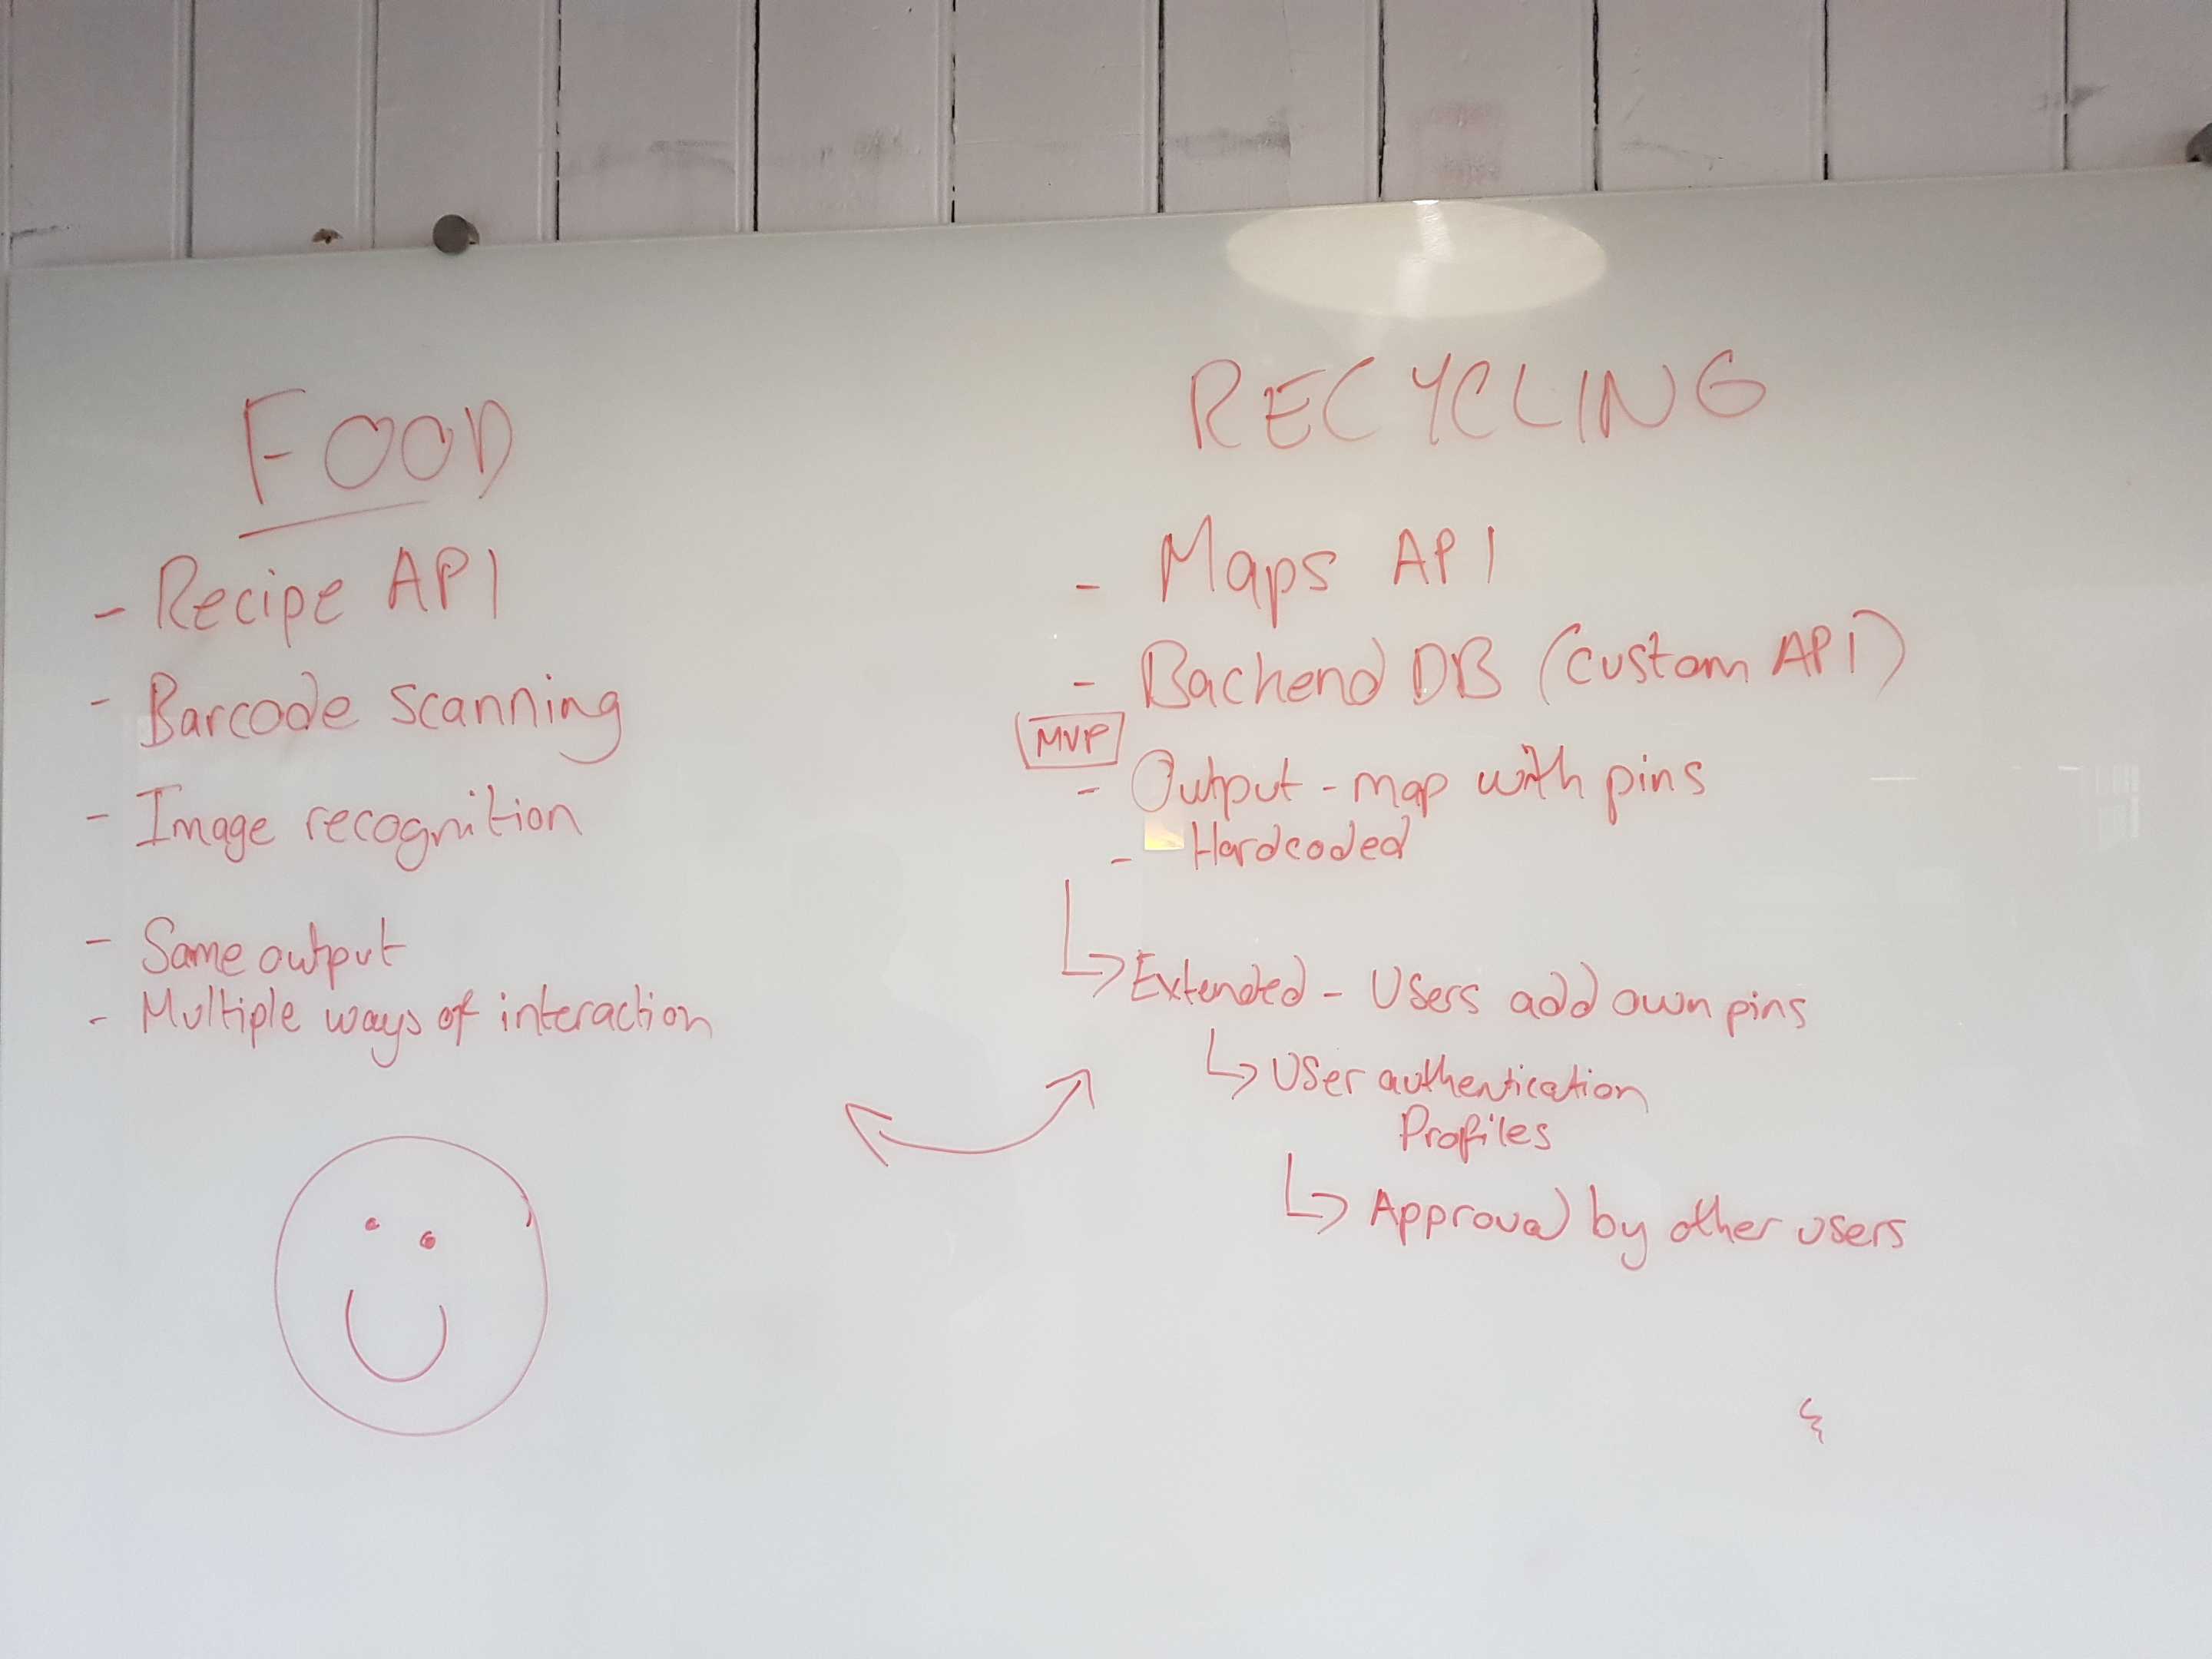 FOOD
- Recipe API
- Barcode scanning
- Image recognition
- Same output
- Multiple ways of interaction
RECYCLING
- Maps API
- Backend DB (custom API)
MVP
- Output - map with pins
- Hardcoded
Extended - Users add own pins
User authentication
Profiles
Approval by other users